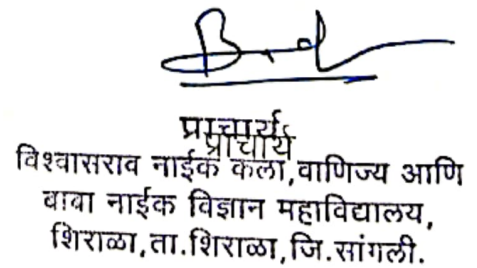 प्राचार्य
प्राचार्य
विश्वासराव नाईक कला,वाणिज्य आणि
बाबा नाईक विज्ञान महाविद्यालय,
शिराळा,ता.शिराळा,जि.सांगली.